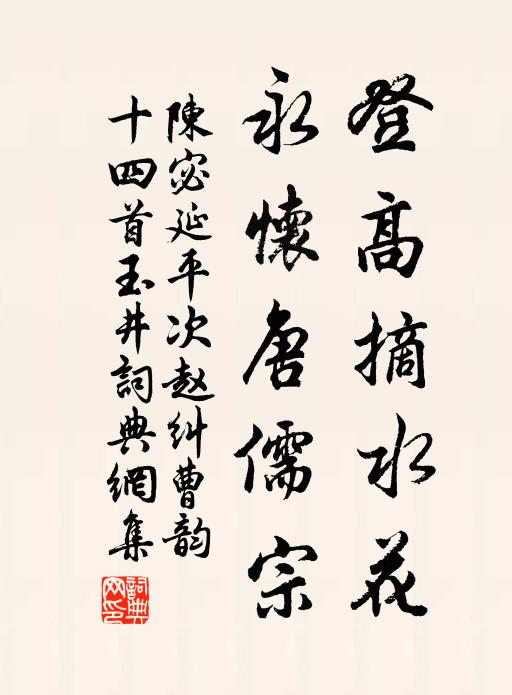 登高摘水花
永懷唐儒宗
陳宓延平次赵糾曹韵
十四首玉井詞典網集
詞典网印